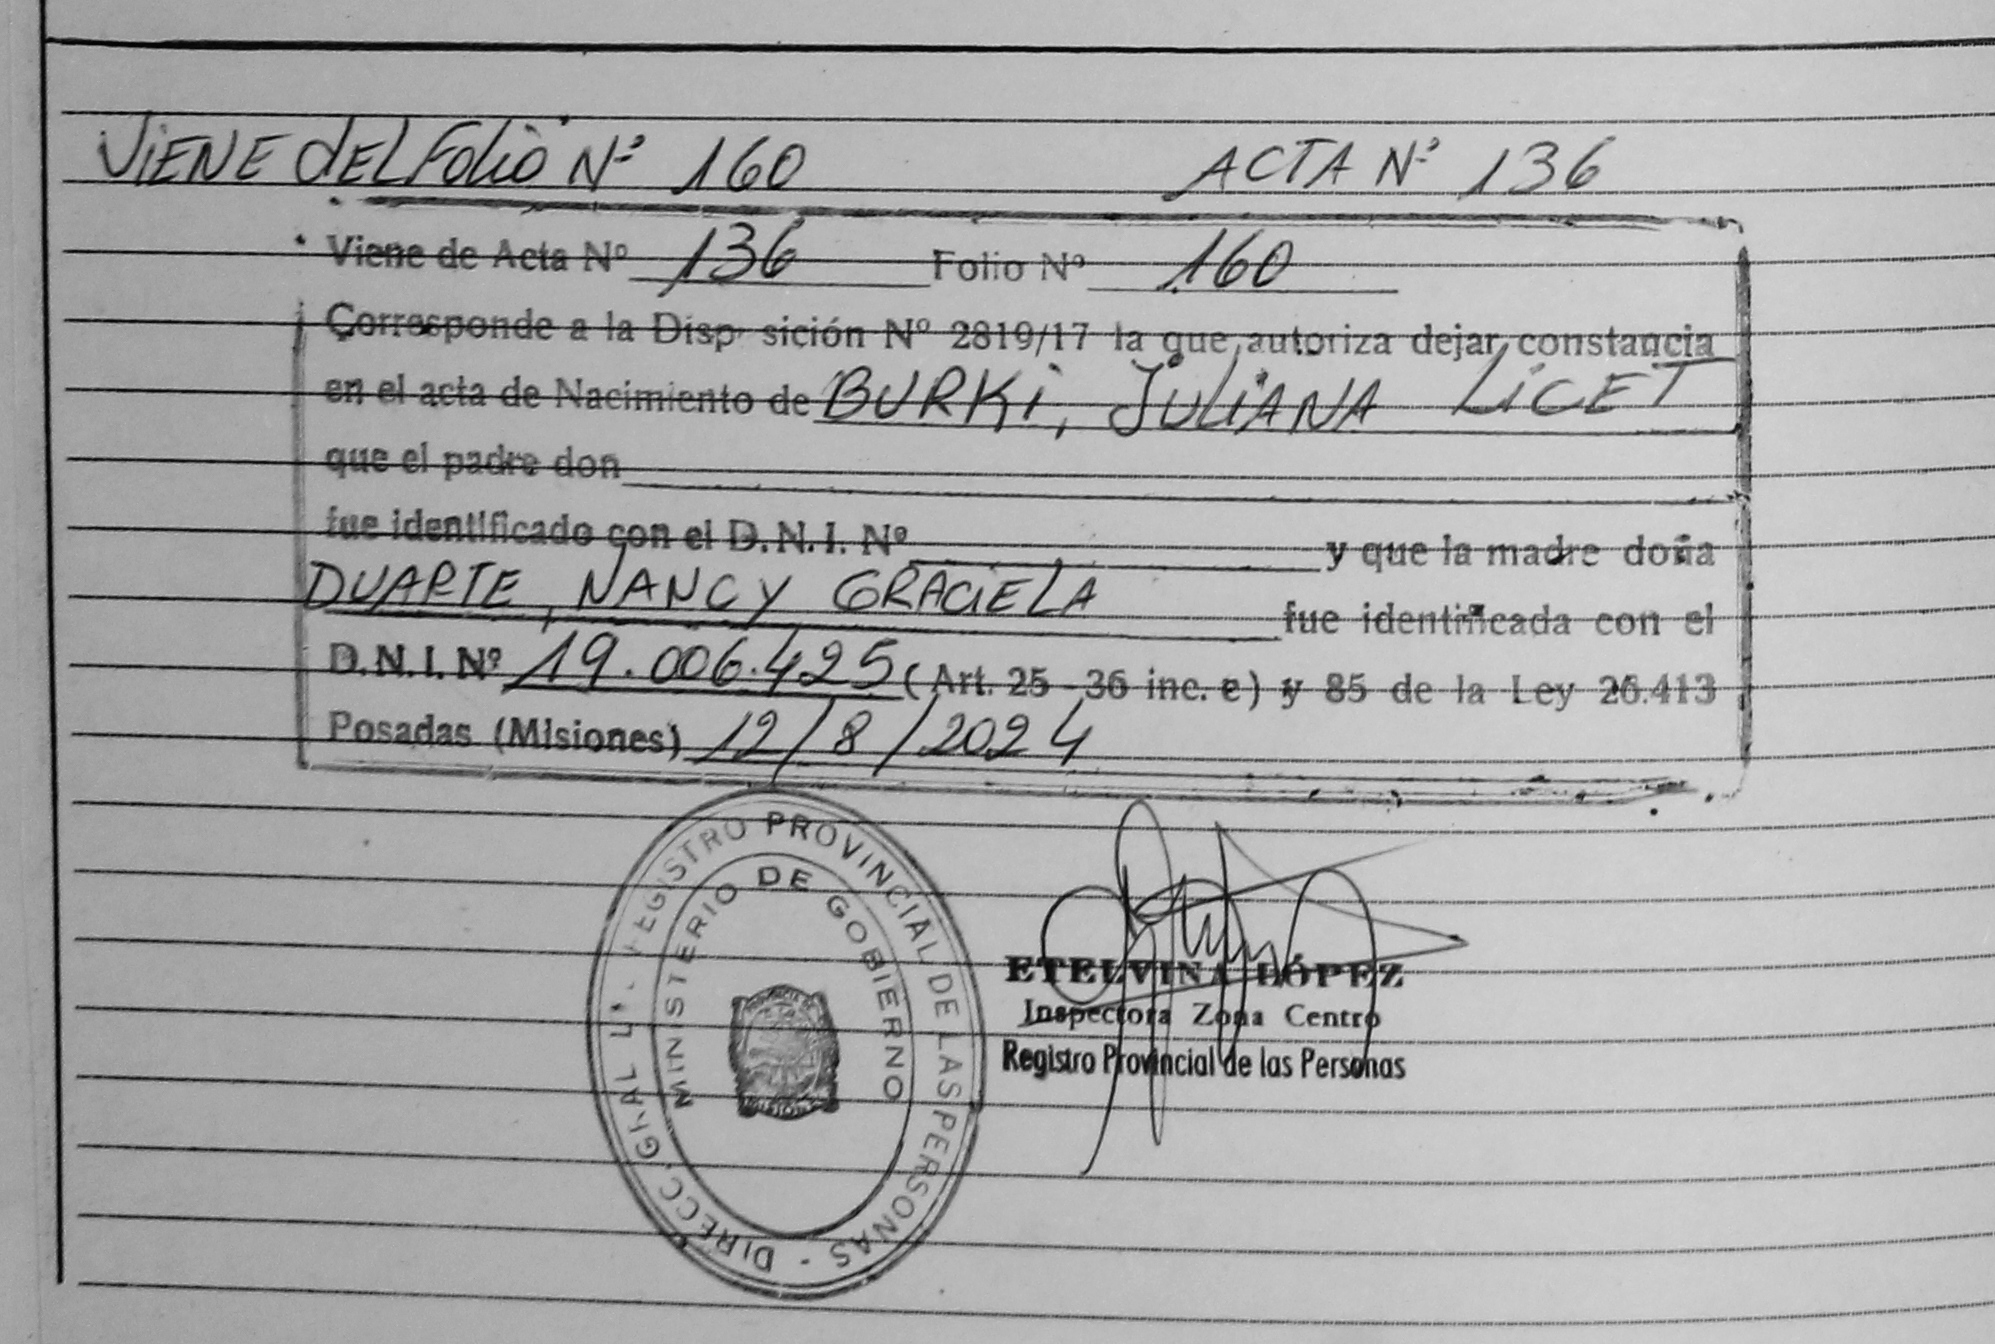 ViENE dEL FoLio Nº 160 ACTA Nº 136
Viene de Acta Nº 136 Folio Nº 160
Corresponde a la Disp sición Nº 2819/17 la que autoriza dejar constancia
en el acta de Nacimiento de BURKi, JULiANA LiCET
que el padre don
fue identificado con el D.N.I. Nº y que la madre doña
DUARTE, NANCY GRACiELA fue identificada con el
D.N.I. Nº 19.006.425 (Art. 25 - 36 inc. e) y 85 de la Ley 26.413
Posadas (Misiones) 12/8/2024
DIRECC. GRAL REGISTRO PROVINCIAL DE LAS PERSONAS -
MINISTERIO DE GOBIERNO
ETELVINA LÓPEZ
Inspectora Zona Centro
Registro Provincial de las Personas